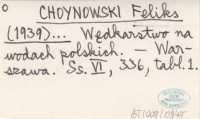 CHOYNOWSKI Feliks
(1939)... Wędkarstwo na
wodach polskich. — War-
szawa. Ss. VI, 336, tabl. 1.